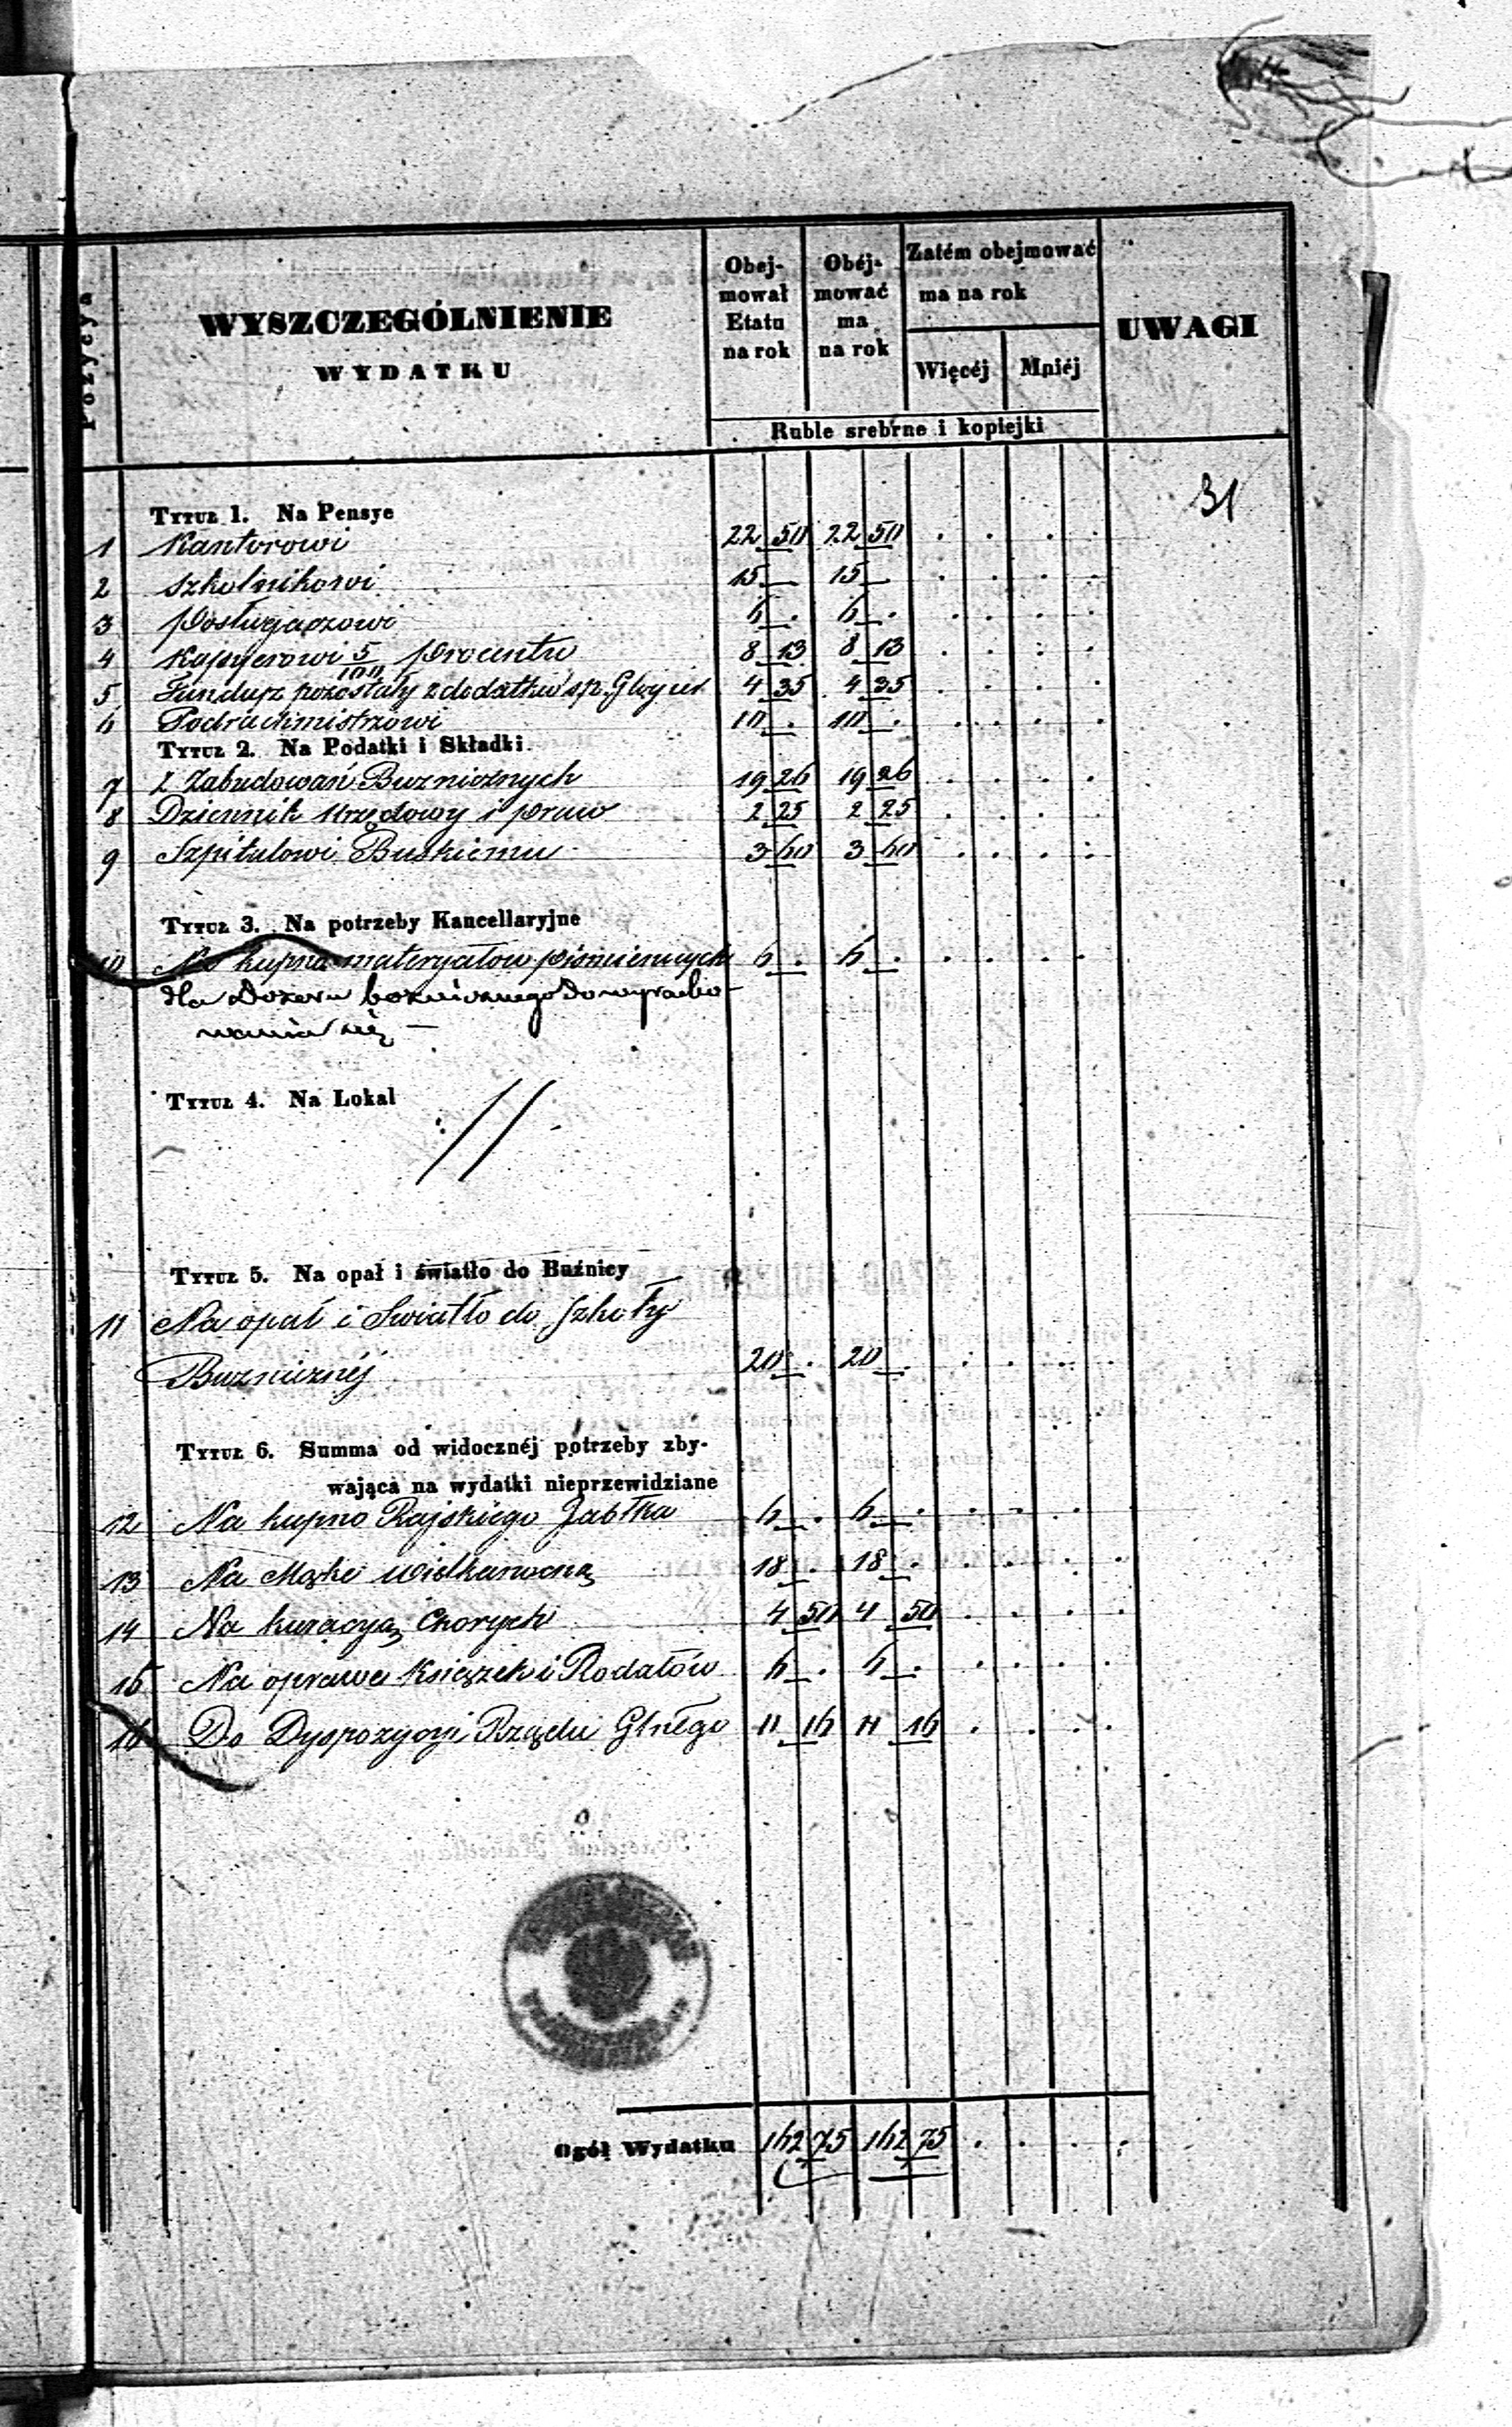 Pozycya
WYSZCZEGÓLNIENIE
WYDATKU
Obej-
mował
Etatu
na rok
Obéj-
mować
ma
na rok
Zatém obejmować
ma na rok
Więcéj
Mniéj
UWAGI
Ruble srebrne i kopiejki
31
Tytuł 1. Na Pensye
1 Kantorowi 22 50 22 50
2 Szkolnikowi 15 — 15 —
3 Posługaczowi 6 . 6 .
4 Kassyerowi 5/100 procentu 8 13 8 13
5 Fundusz pozostały z dodatku sp. 4 35 4 35
6 Podrachmistrzowi 10 . 10 .
Tytuł 2. Na Podatki i Składki
7 Z Zabudowań Buznicznych 19 26 19 26
8 Dziennik Urzędowy i praw 2 25 2 25
9 Szpitalowi Buskiemu 3 60 3 60
Tytuł 3. Na potrzeby Kancellaryjne
10 Na kupno materyałow piśmiennych 6 . 6 .
dla Dozoru boznicznego do wyracho-
wania się —
Tytuł 4. Na Lokal
Tytuł 5. Na opał i światło do Buźnicy
11 Na opał i Swiatło do Szkoły
Buznicznéj 20 . 20 .
Tytuł 6. Summa od widocznéj potrzeby zby-
wająca na wydatki nieprzewidziane
12 Na kupno Rajskiego Jabłka 6 . 6 .
13 Na Mąkę wielkanocną 18 . 18 .
14 Na kuracyą Chorych 4 50 4 50
15 Na oprawę Książek i Rodałów 6 . 6 .
16 Do Dyspozycyi Rządu Glnego 11 16 11 16
Ogół Wydatku 162 75 162 75